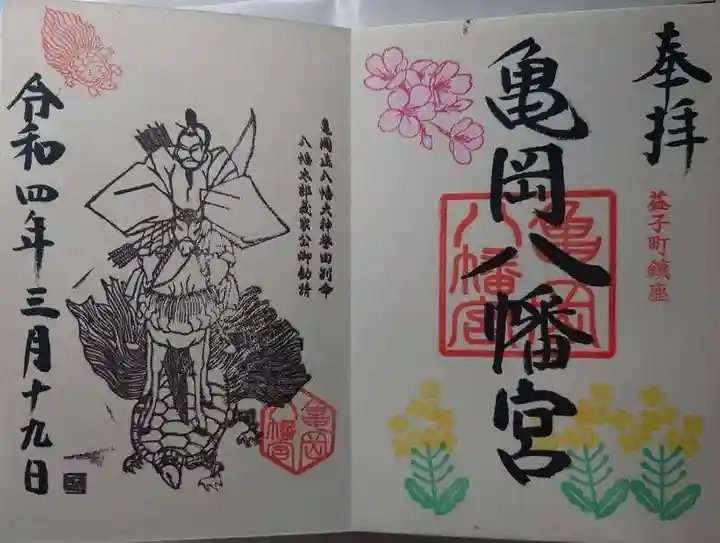 奉拝
益子町鎮座
亀岡八幡宮
亀岡
八幡宮
亀岡正八幡大神誉田別命
八幡太郎義家公御勧請
令和四年三月十九日
亀岡
八幡宮